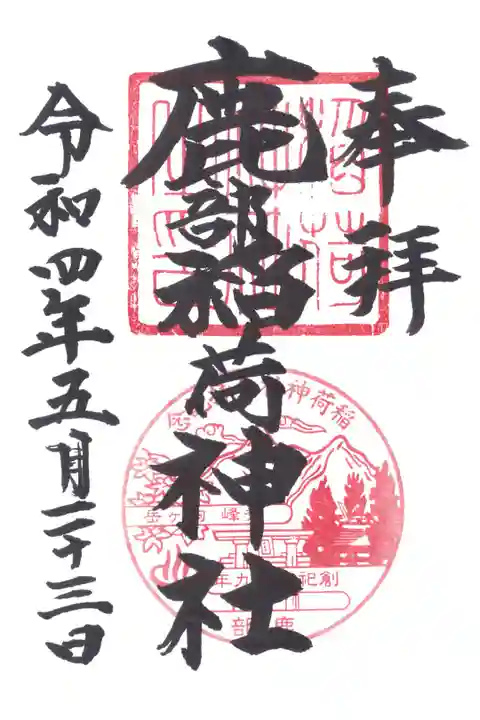 奉拝
鹿部稲荷神社
令和四年五月二十三日
稲荷神
創祀 九年
鹿部